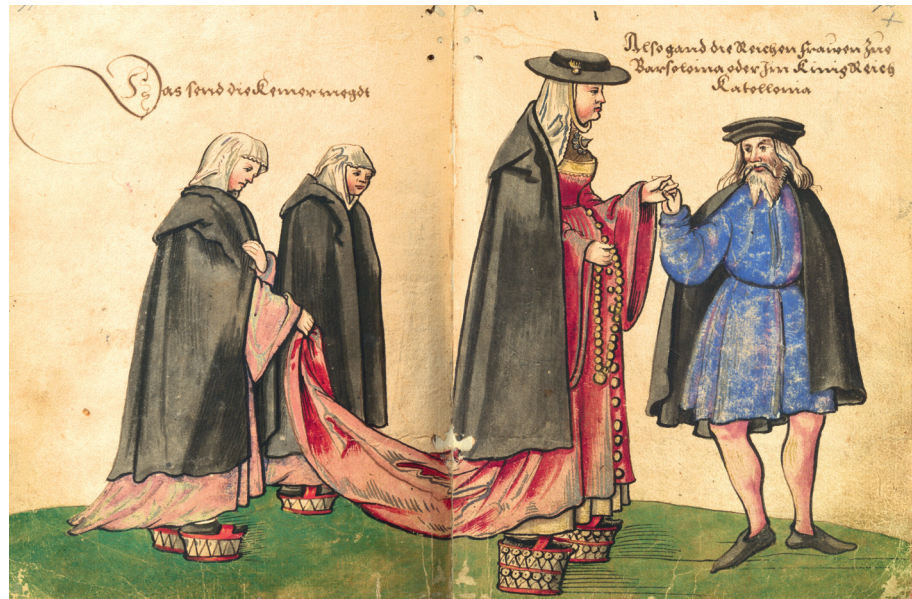 Das send die Kemer megdt
Also gand die Reichen frawen Inn
Barseloina oder Jm Kinig Reich
Katelloina